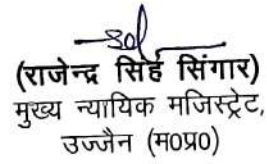 sd/
(राजेन्द्र सिंह सिंगार)
मुख्य न्यायिक मजिस्ट्रेट,
उज्जैन (म0प्र0)